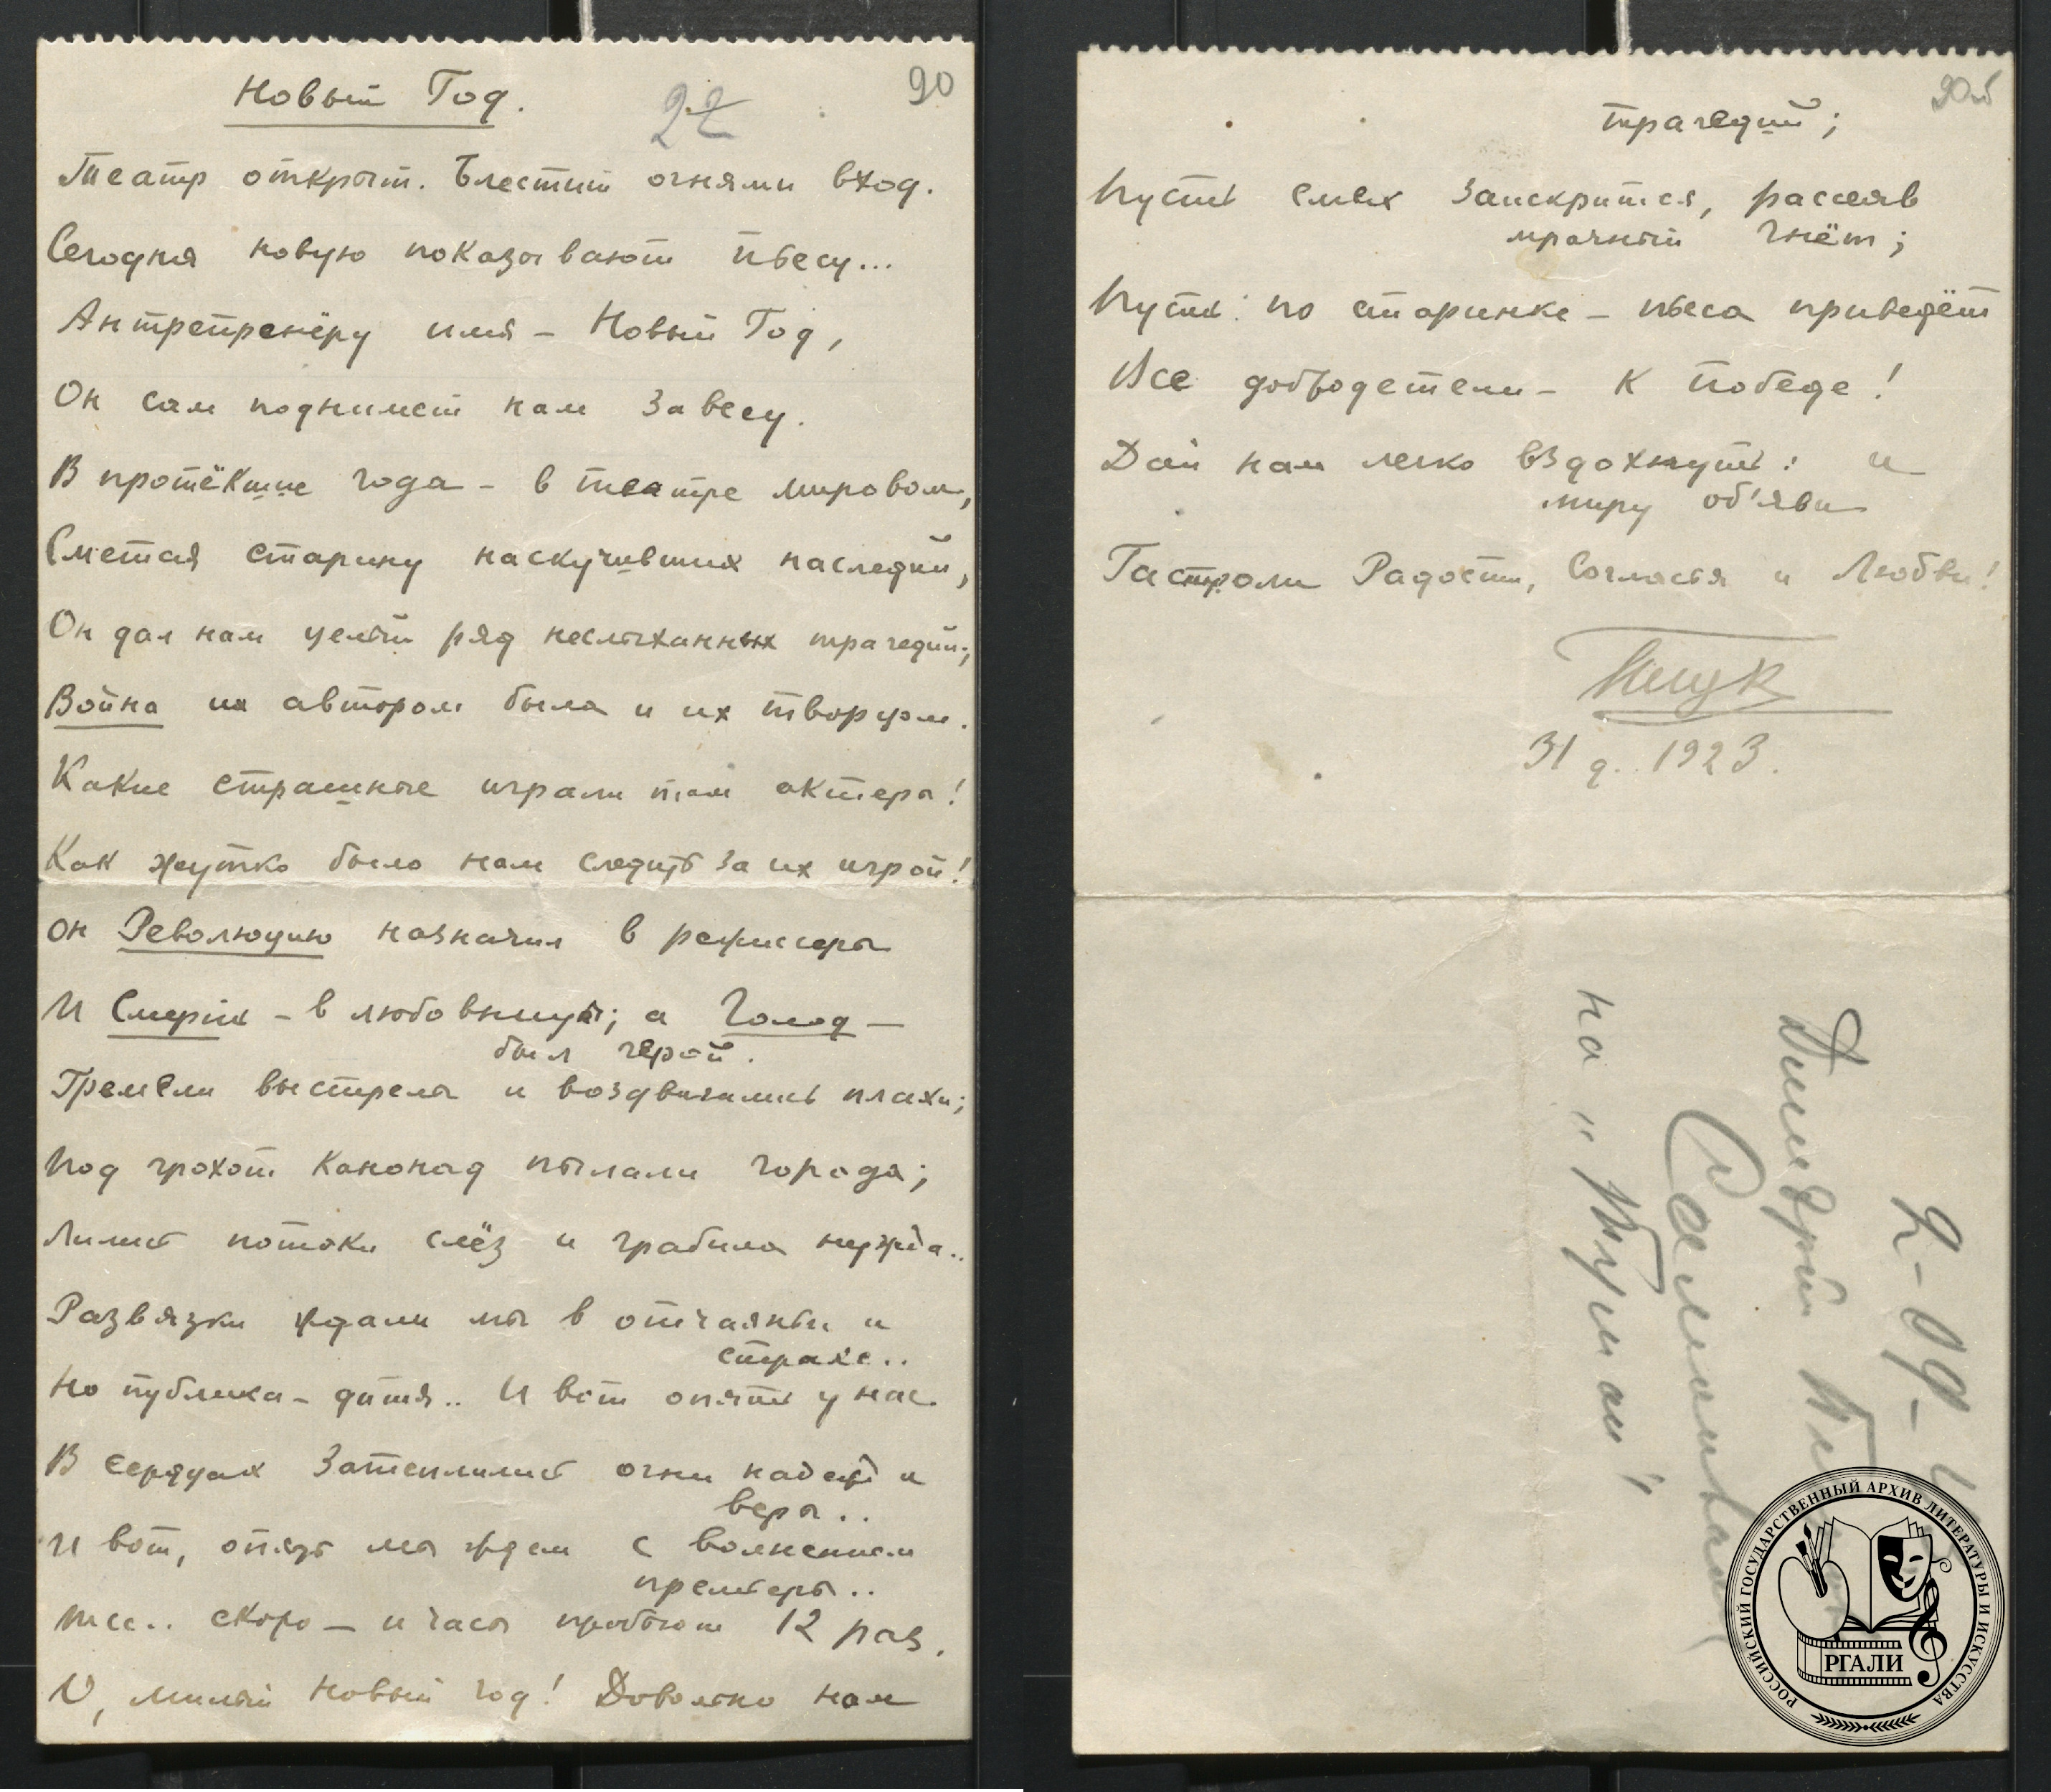 Новый Год.
22
90
Театр открыт. Блестит огнями вход.
Сегодня новую показывают пьесу...
Антрепренёру имя – Новый Год,
Он сам поднимет нам завесу.
В протёкшие года – в театре мировом,
Сметая старину наскучивших наследий,
Он дал нам целый ряд неслыханных трагедий;
Война их автором была и их творцом.
Какие страшные играли там актеры!
Как жутко было нам следить за их игрой!
Он Революцию назначил в режиссеры
И Смерть – в любовницы; а Голод –
был герой.
Гремели выстрелы и воздвигались плахи;
Под грохот канонад пылали города;
Лились потоки слёз и грабила нужда..
Развязки ждали мы в отчаяньи и
страхе..
Но публика – дитя.. И вот опять у нас
В сердцах затеплились огни надежд и
веры..
И вот, опять мы ждем с волнением
премьеры..
Тсс.. скоро – и часы пробьют 12 раз.
О, милый Новый год! Довольно нам
90об
трагедий;
Пусть смех заискрится, рассеяв
мрачный гнёт;
Пусть: по старинке – пьеса приведёт
Все добродетели – к победе!
Дай нам легко вздохнуть: и
миру об'яви
Гастроли Радости, Согласья и Любви!
31 д. 1923.
Дмитрий
на "
РОССИЙСКИЙ ГОСУДАРСТВЕННЫЙ АРХИВ ЛИТЕРАТУРЫ И ИСКУССТВА
РГАЛИ